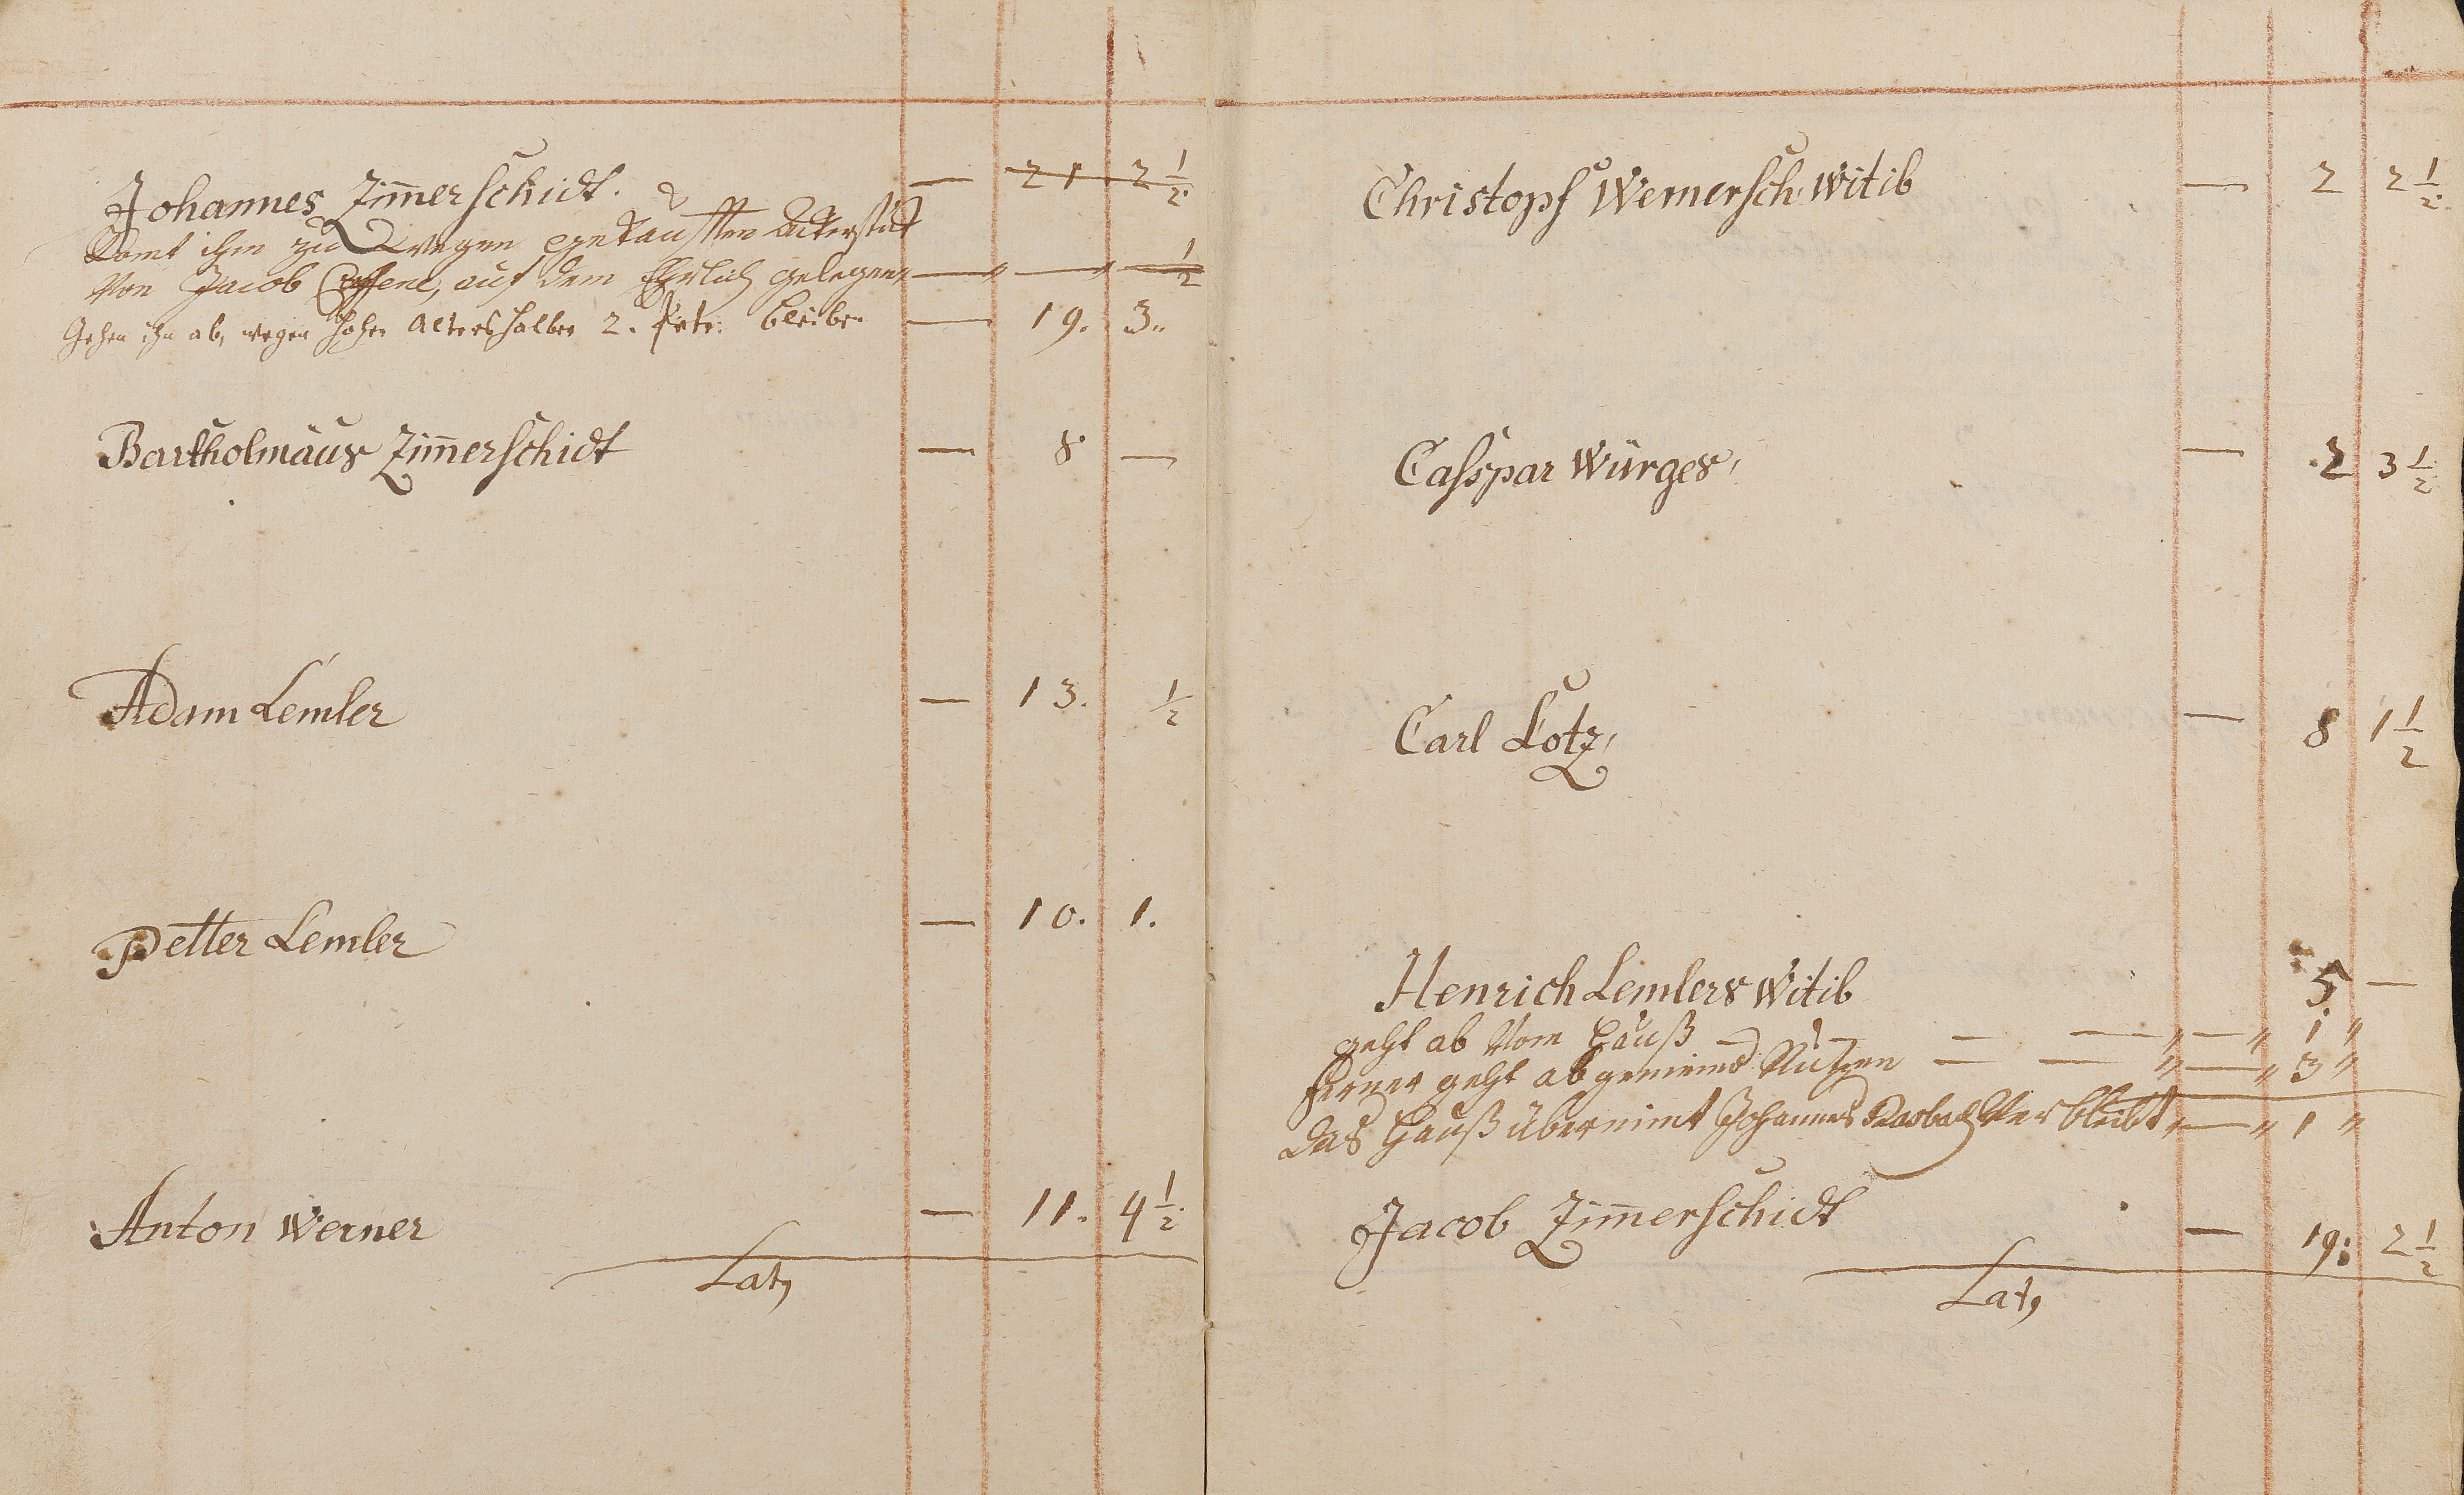 Johannes Zim̄erschidt. — 21 2 1/2.
Komt ihm zu wegen gekaufften Ackerstück
Von Jacob auf dem gelegen — " — " 1/2
Gehen ihm ab, wegen hohen Altershalber 2. bleiben — 19. 3..
Bartholmäus Zim̄erschidt — 8 —
Adam Lemler — 13. 1/2
Petter Lemler — 10. 1.
Anton Werner — 11. 4 1/2.
Lat,
Christoph Wernersch Witib — 2 2 1/2.
Casspar Würges, — 2 3 1/2
Carl Lotz, — 8 1 1/2
Henrich Lemlers Witib 5. —
geht ab Vom Hauß — — — " — " 1 "
ferner geht ab gemeine Nutzen — — " — " 3 "
Das Hauß übernimt Johannes Verbleibt " — " 1 "
Jacob Zim̄erschidt — 19: 2 1/2
Lat,